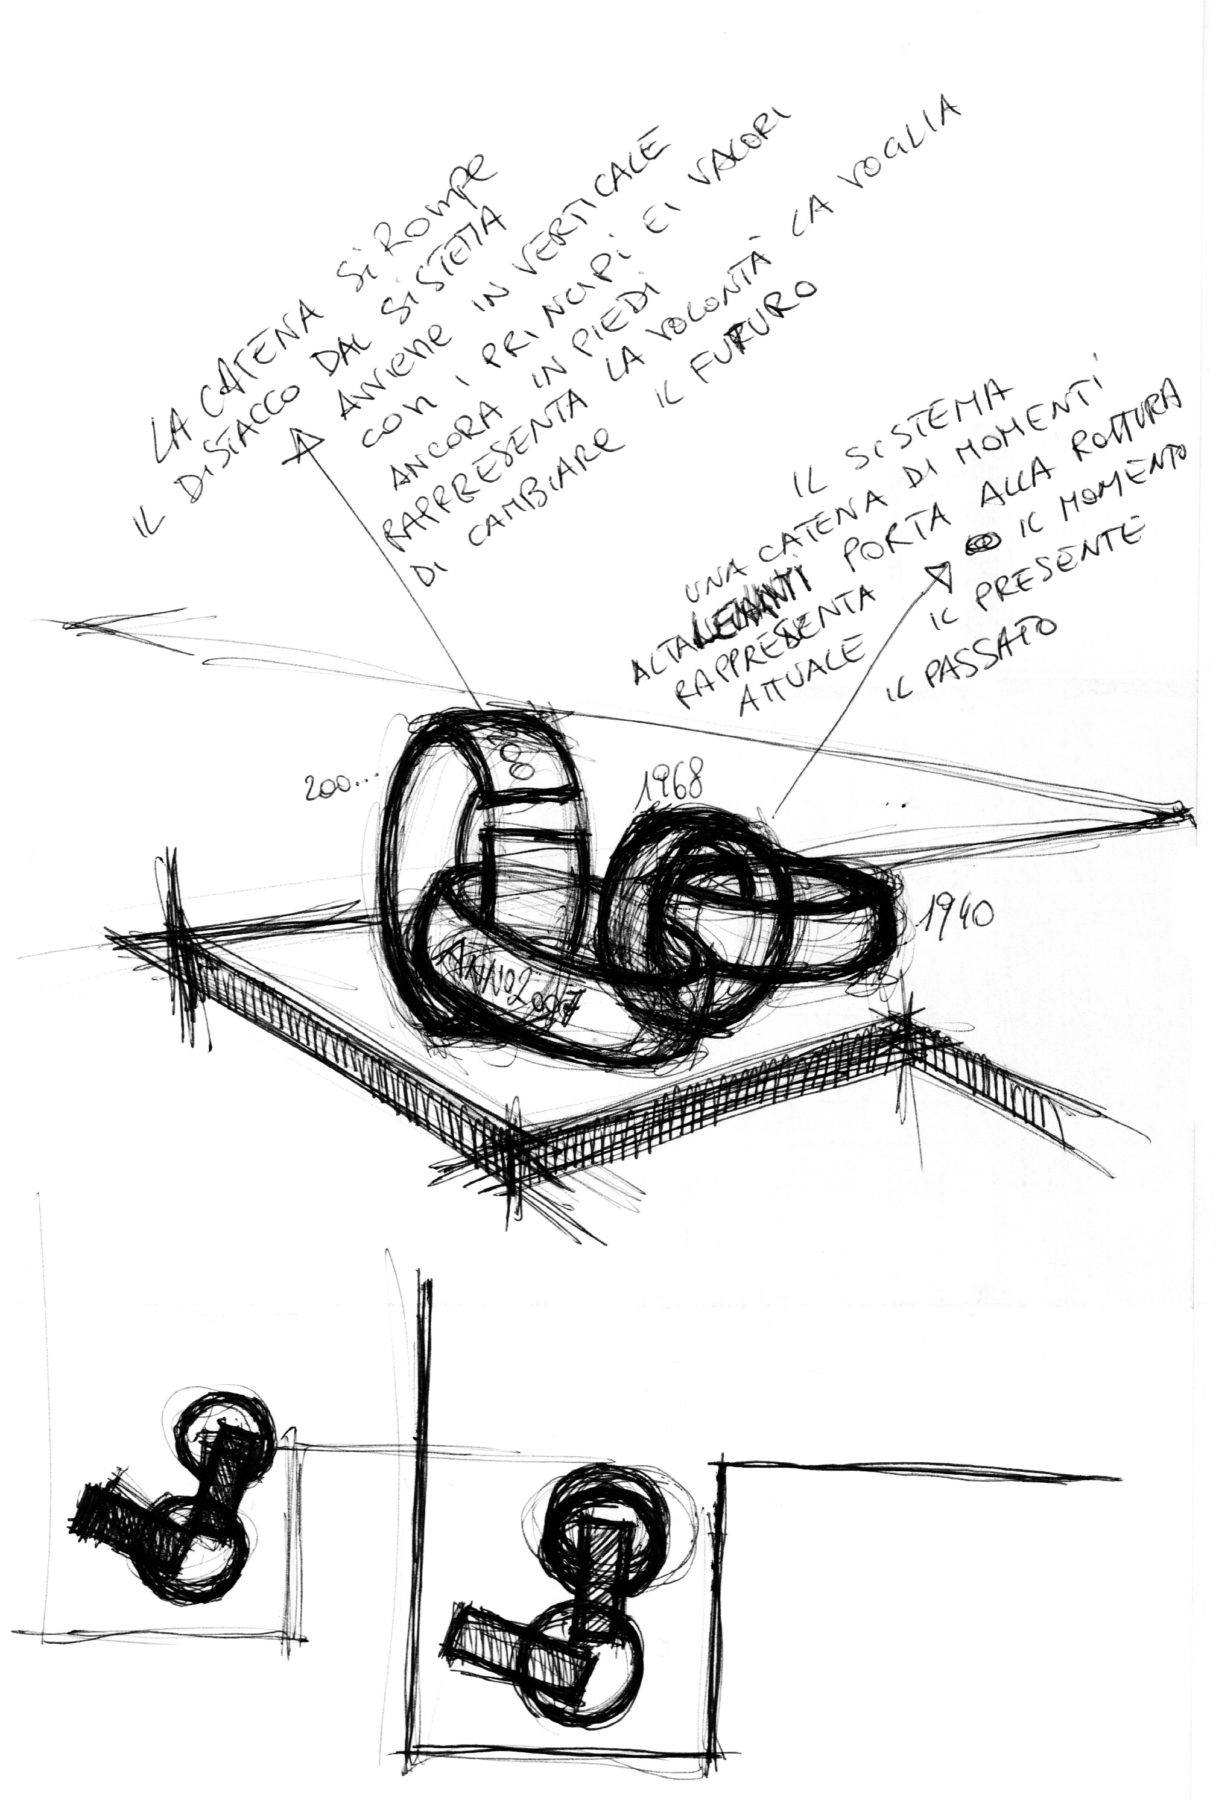 LA CATENA SI ROMPE
IL DISTACCO DAL SISTEMA
AVVIENE IN VERTICALE
CON I PRINCIPI E I VALORI
ANCORA IN PIEDI
RAPPRESENTA LA VOLONTÀ LA VOGLIA
DI CAMBIARE IL FUTURO
IL SISTEMA
UNA CATENA DI MOMENTI
ALTALENANTI PORTA ALLA ROTTURA
RAPPRESENTA IL MOMENTO
ATTUALE IL PRESENTE
IL PASSATO
200...
8
1968
1940
ANNO 2007